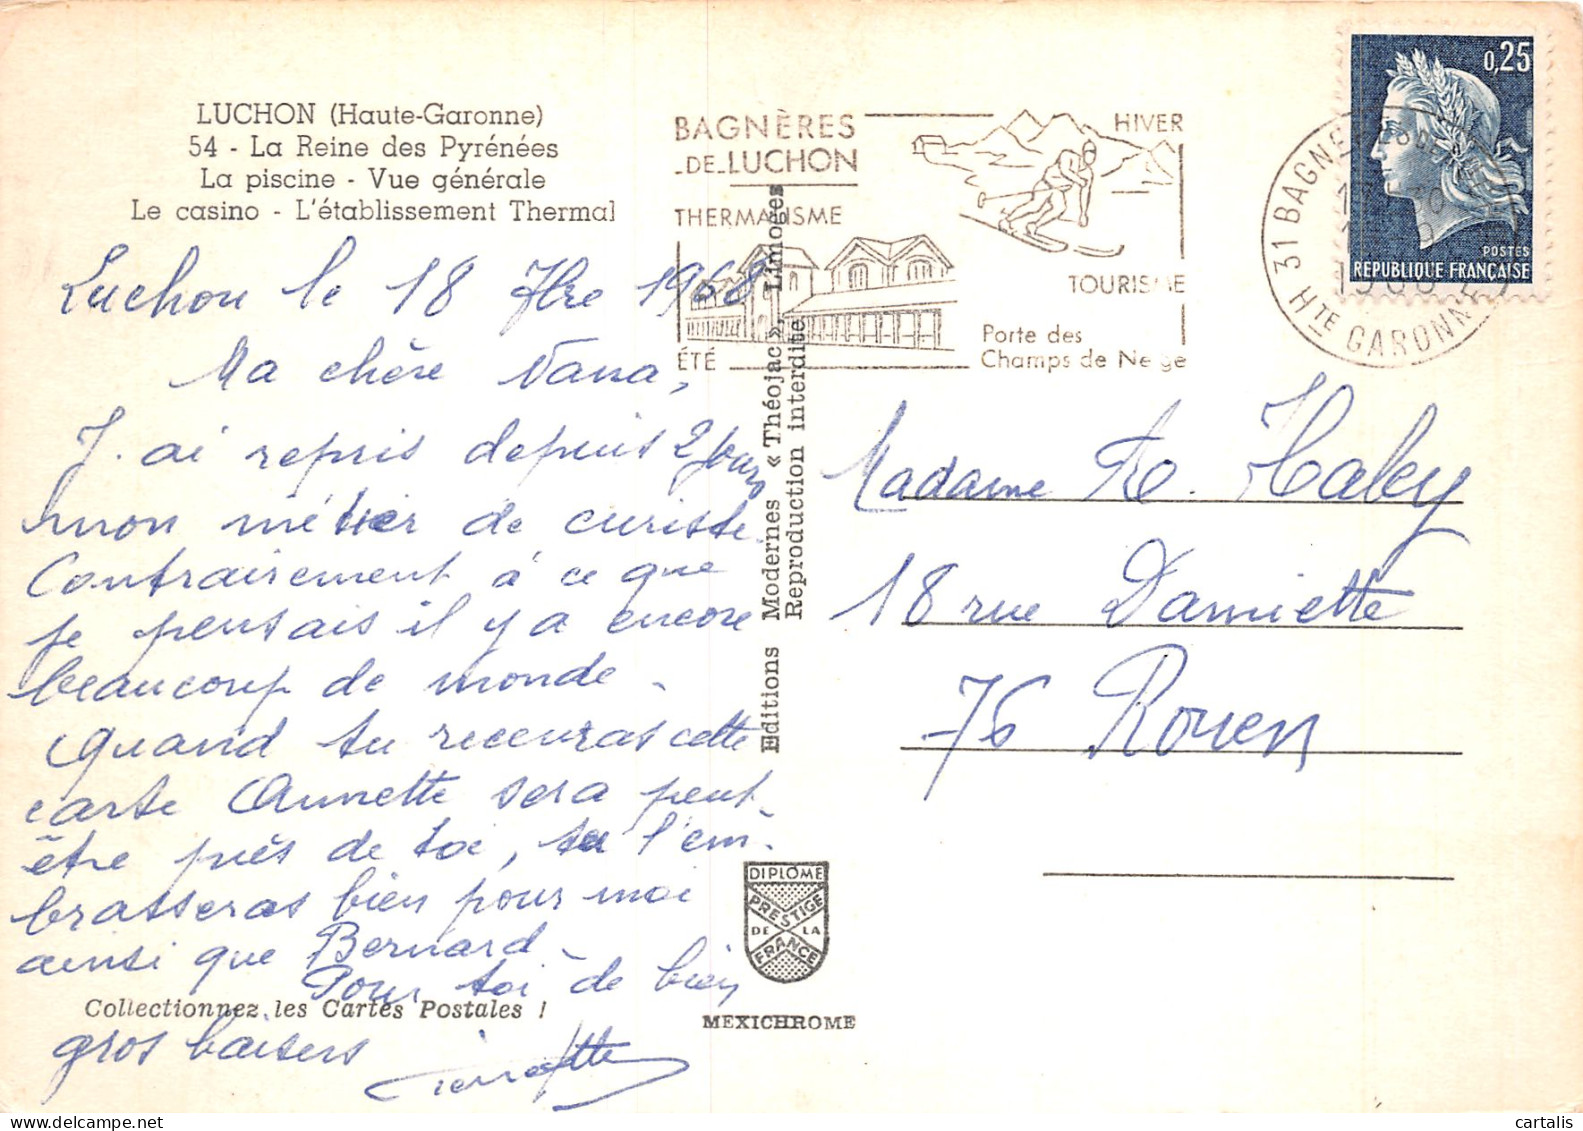 LUCHON (Haute-Garonne)
54 - La Reine des Pyrénées
La piscine - Vue générale
Le casino - L'établissement Thermal
Luchon le 18 7bre 1968
Ma chère Nana,
J'ai repris depuis 2 jours
mon métier de curiste.
Contrairement à ce que
je pensais il y a encore
beaucoup de monde.
Quand tu recevras cette
carte Annette sera peut-
être près de toi, tu l'em-
brasseras bien pour moi
ainsi que Bernard.
Pour toi de bien
gros baisers
Pierrette
Collectionnez les Cartes Postales !
Editions Modernes « Théojac », Limoges
Reproduction interdite
DIPLÔME
PRESTIGE
DE LA
FRANCE
MEXICHROME
BAGNÈRES
DE LUCHON
THERMALISME
ÉTÉ
HIVER
TOURISME
Porte des
Champs de Neige
31 BAGNERES DE LUCHON
1968
HTE GARONNE
0,25
POSTES
REPUBLIQUE FRANÇAISE
Madame A. Haley
18 rue Damiette
76 Rouen
cartalis